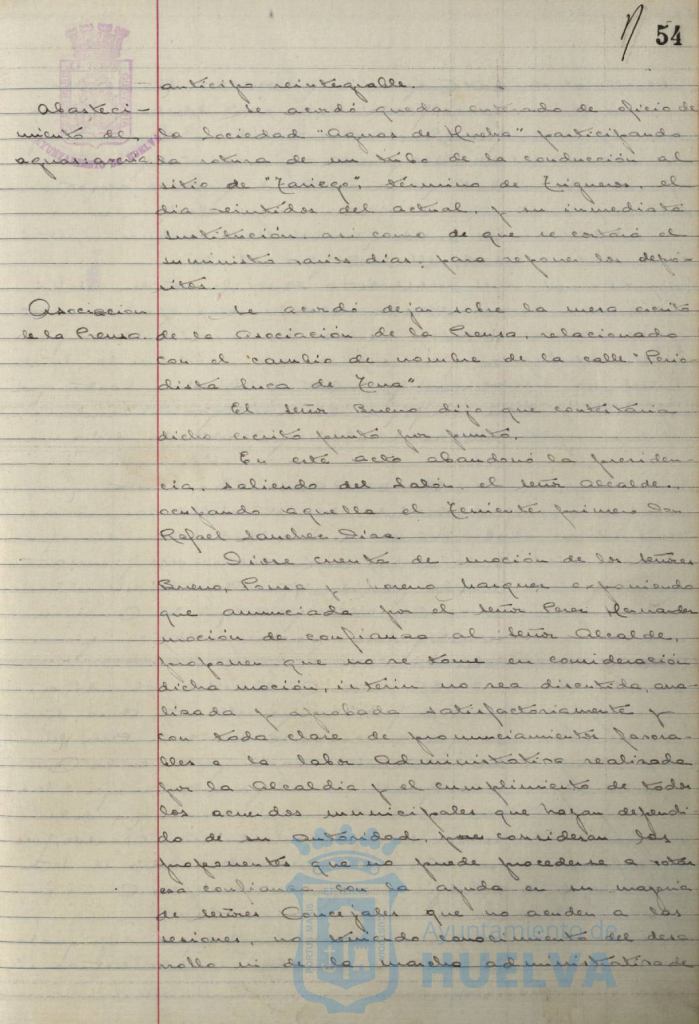 54
anticipo reintegrable.
Abasteci-
miento de
aguas: avería
Se acordó quedar enterado de oficio de
la Sociedad "Aguas de Huelva" participando
la rotura de un tubo de la conducción al
sitio de "Zariego", término de Trigueros, el
día veintidos del actual, y su inmediata
sustitución, asi como de que se cortará el
suministro varios dias, para reponer los depó-
sitos.
Asociacion
de la Prensa.
Se acordó dejar sobre la mesa escrito
de la Asociación de la Prensa, relacionado
con el cambio de nombre de la calle "Perio-
dista Luca de Tena".
El señor Bueno dijo que contestaria
dicho escrito punto por punto.
En este acto abandonó la presiden-
cia, saliendo del Salón, el señor Alcalde,
ocupando aquella el Teniente primero Don
Rafael Sanchez Diaz.
Diose cuenta de moción de los señores
Bueno, Ponce y Moreno Marquez exponiendo
que anunciada por el señor Perez Hernandez
moción de confianza al señor Alcalde,
proponen que no se tome en consideración
dicha moción, interin no sea discutida, ana-
lizada y aprobada satisfactoriamente y
con toda clase de pronunciamientos favora-
bles a la labor Administrativa realizada
por la Alcaldia y el cumplimiento de todos
los acuerdos municipales que hayan dependi-
do de su autoridad, pues consideran los
proponentes que no puede procederse a votar
esa confianza con la ayuda en su mayoria
de señores Concejales que no acuden a las
sesiones, no teniendo conocimiento del desa-
rrollo ni de la marcha administrativa de
Ayuntamiento de
HUELVA